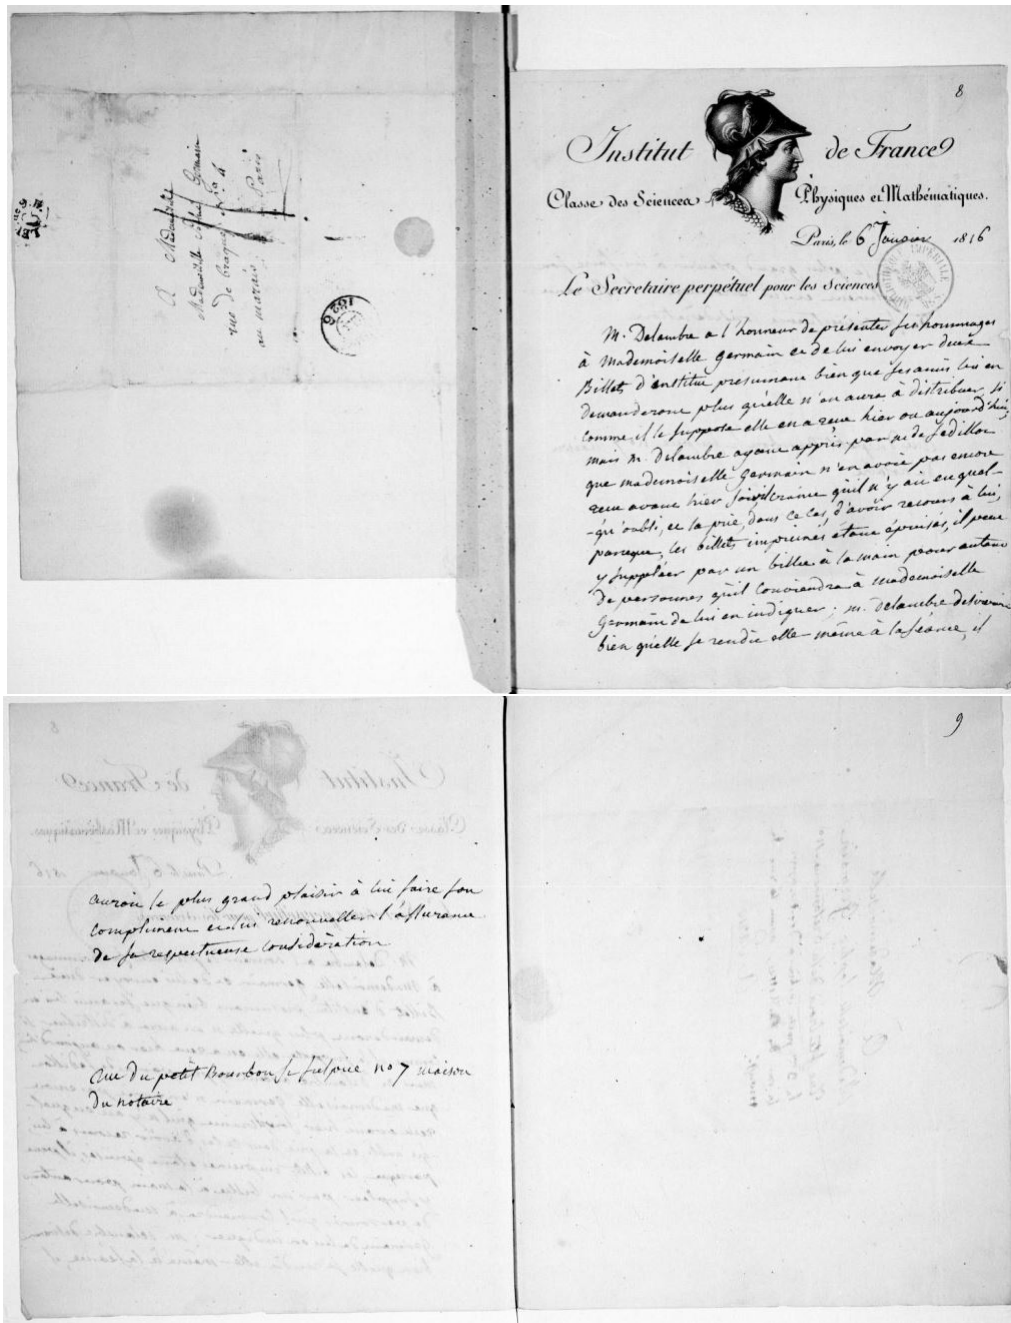 A Mademoiselle
Mademoiselle Sophie Germain
rue de braque no 4
au marais Paris
1826
8
Institut de France
Classe des Sciences Physiques et Mathématiques.
Paris, le 6 Janvier 1816
Le Secretaire perpétuel pour les Sciences
M. Delambre a l'honneur de présenter ses hommages
à Mademoiselle Germain et de lui envoyer deux
Billets d'Institut présumant bien que ses amis lui en
demanderont plus qu'elle n'en aura à distribuer, si
comme il le suppose elle en a reçu hier ou aujourd'hui,
mais M. Delambre ayant appris par M. de Sedillot
que mademoiselle Germain n'en avoit pas encore
reçu avant hier soir, il craint qu'il n'y ait eu quel-
-qu'oubli, et la prie, dans ce cas, d'avoir recours à lui,
parceque, les billets imprimés étant épuisés, il peut
y suppléer par un billet à la main pour autant
de personnes qu'il conviendra à Mademoiselle
Germain de lui en indiquer; M. Delambre desireroit
bien qu'elle se rendit elle-même à la séance, il
auroit le plus grand plaisir à lui faire son
compliment et lui renouveller l'assurance
de sa respectueuse considération
rue du petit Bourbon St Sulpice no 7 maison
du notaire
9